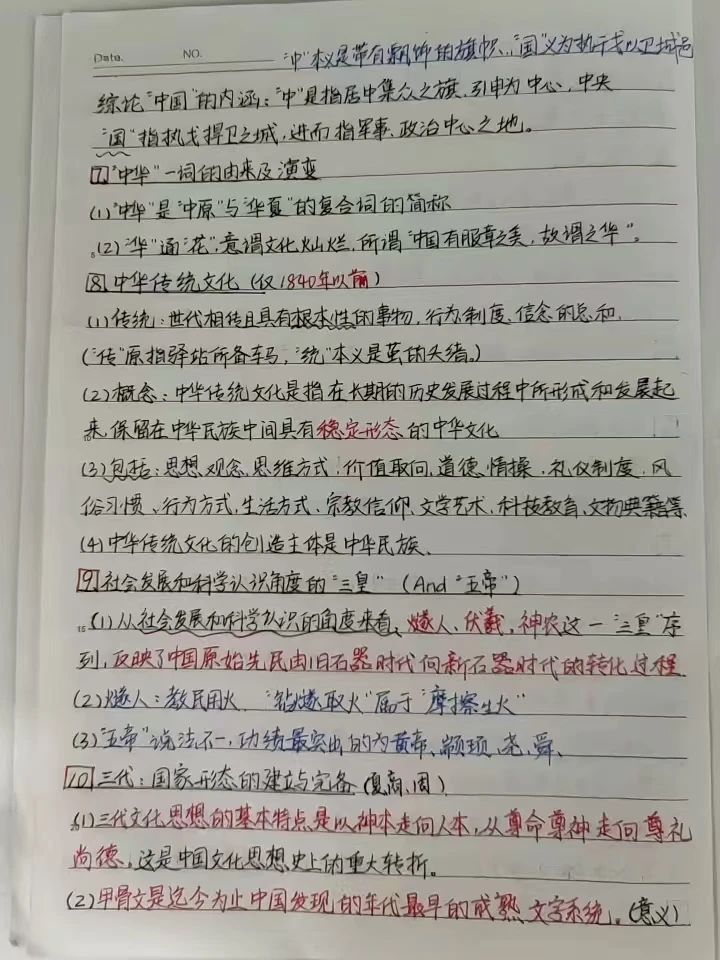 Date. NO.
"中"本义是带有飘饰的旗帜,"国"义为执干戈以卫城邑
综论"中国"的内涵:"中"是指居中集众之旗,引申为中心,中央
"国"指执戈捍卫之城,进而指军事、政治中心之地。
7."中华"一词的由来及演变
(1)"中华"是"中原"与"华夏"的复合词的简称
(2)"华"通"花",意谓文化灿烂,所谓"中国有服章之美,故谓之华"。
8.中华传统文化(仅1840年以前)
(1)传统:世代相传且具有根本性的事物,行为制度、信念的总和.
("传"原指驿站所备车马,"统"本义是茧的头绪。)
(2)概念:中华传统文化是指在长期的历史发展过程中所形成和发展起
来,保留在中华民族中间具有稳定形态的中华文化
(3)包括:思想观念、思维方式、价值取向、道德情操、礼仪制度、风
俗习惯、行为方式、生活方式、宗教信仰、文学艺术、科技教育、文物典籍等
(4)中华传统文化的创造主体是中华民族、
9.社会发展和科学认识角度的"三皇"(And"五帝")
(1)从社会发展和科学认识的角度来看,燧人、伏羲、神农这一"三皇"序
列,反映了中国原始先民由旧石器时代向新石器时代的转化过程
(2)燧人:教民用火."钻燧取火"属于"摩擦生火"
(3)"五帝"说法不一,功绩最突出的为黄帝、颛顼、尧、舜、
10.三代:国家形态的建立与完备(夏、商、周)
(1)三代文化思想的基本特点是以神本走向人本,从尊命尊神走向尊礼
尚德,这是中国文化思想史上的重大转折。
(2)甲骨文是迄今为止中国发现的年代最早的成熟文字系统。(意义)